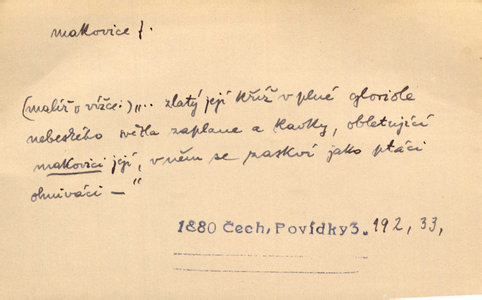 makovice f.
(malíř o vížce:) „.. zlatý její kříž v plné gloriole
nebeského světla zaplane a kavky, obletující
makovici její, v něm se zaskví jako ptáci
ohniváci —"
1880 Čech, Povídky 3. 192, 33,